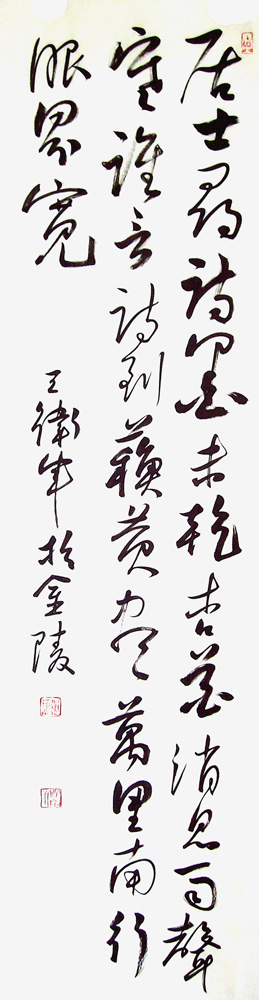 居士尋詩墨未乾杏花消息雨聲
寒誰言詩到蘇黃盡萬里南行
眼界寬
王衛軍於金陵